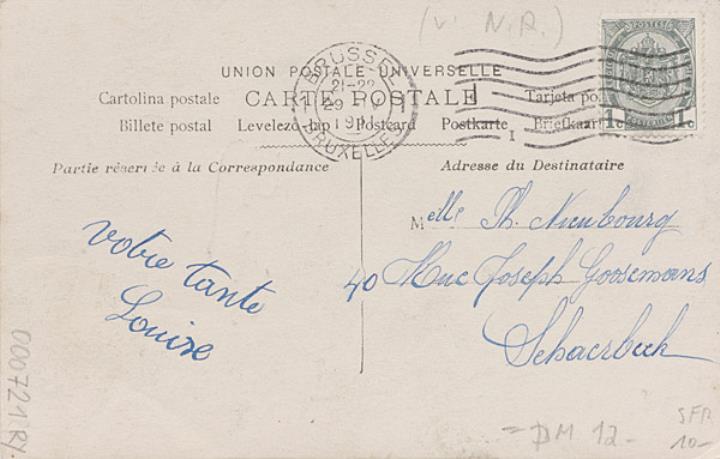 (v. N.R.)
BRUSSEL
21-22
29 IV
191
BRUXELLES
POSTES
1c 1c
UNION POSTALE UNIVERSELLE
Cartolina postale CARTE POSTALE Tarjeta po
Billete postal Levelező-lap Postcard Postkarte Briefkaart
1
Partie réservée à la Correspondance
Adresse du Destinataire
votre tante
Louise
Melle Th. Nieubourg
40 Rue Joseph Goosemans
Schaerbeek
000721(R)
= DM 12.-
SFR
10.-